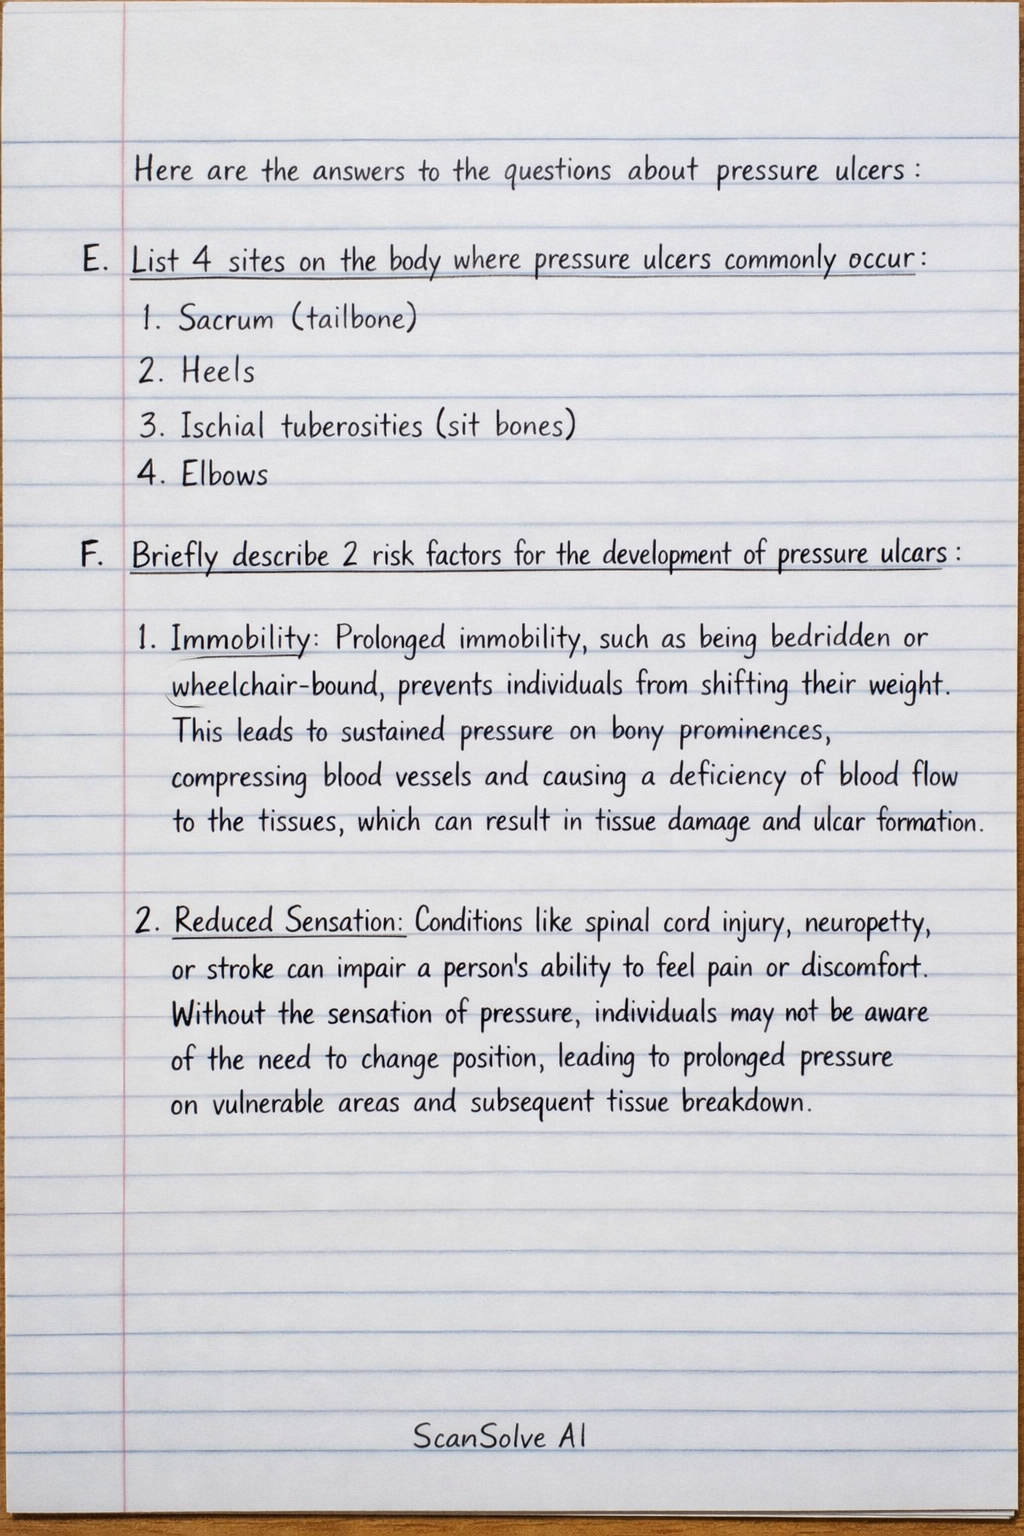 Here are the answers to the questions about pressure ulcers :
E. List 4 sites on the body where pressure ulcers commonly occur :
1. Sacrum (tailbone)
2. Heels
3. Ischial tuberosities (sit bones)
4. Elbows
F. Briefly describe 2 risk factors for the development of pressure ulcars :
1. Immobility: Prolonged immobility, such as being bedridden or
wheelchair-bound, prevents individuals from shifting their weight.
This leads to sustained pressure on bony prominences,
compressing blood vessels and causing a deficiency of blood flow
to the tissues, which can result in tissue damage and ulcar formation.
2. Reduced Sensation: Conditions like spinal cord injury, neuropetty,
or stroke can impair a person's ability to feel pain or discomfort.
Without the sensation of pressure, individuals may not be aware
of the need to change position, leading to prolonged pressure
on vulnerable areas and subsequent tissue breakdown.
ScanSolve AI